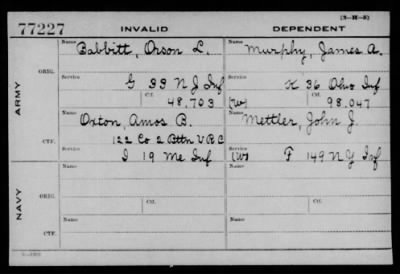 (3-H-5)
77227 INVALID DEPENDENT
ARMY
ORIG.
Name Babbitt, Orson L. Name Murphy, James A.
Service G 33 N J Inf Service K 36 Ohio Inf
Ctf. 48,703 (W) Ctf. 98.047
CTF.
Name Oxton, Amos B. Name Mettler, John J.
Service 122 Co 2 Bttn V R C Service
I 19 Me Inf (W) F 149 N Y Inf
NAVY
ORIG.
Name Name
Ctf. Ctf.
CTF.
Name Name